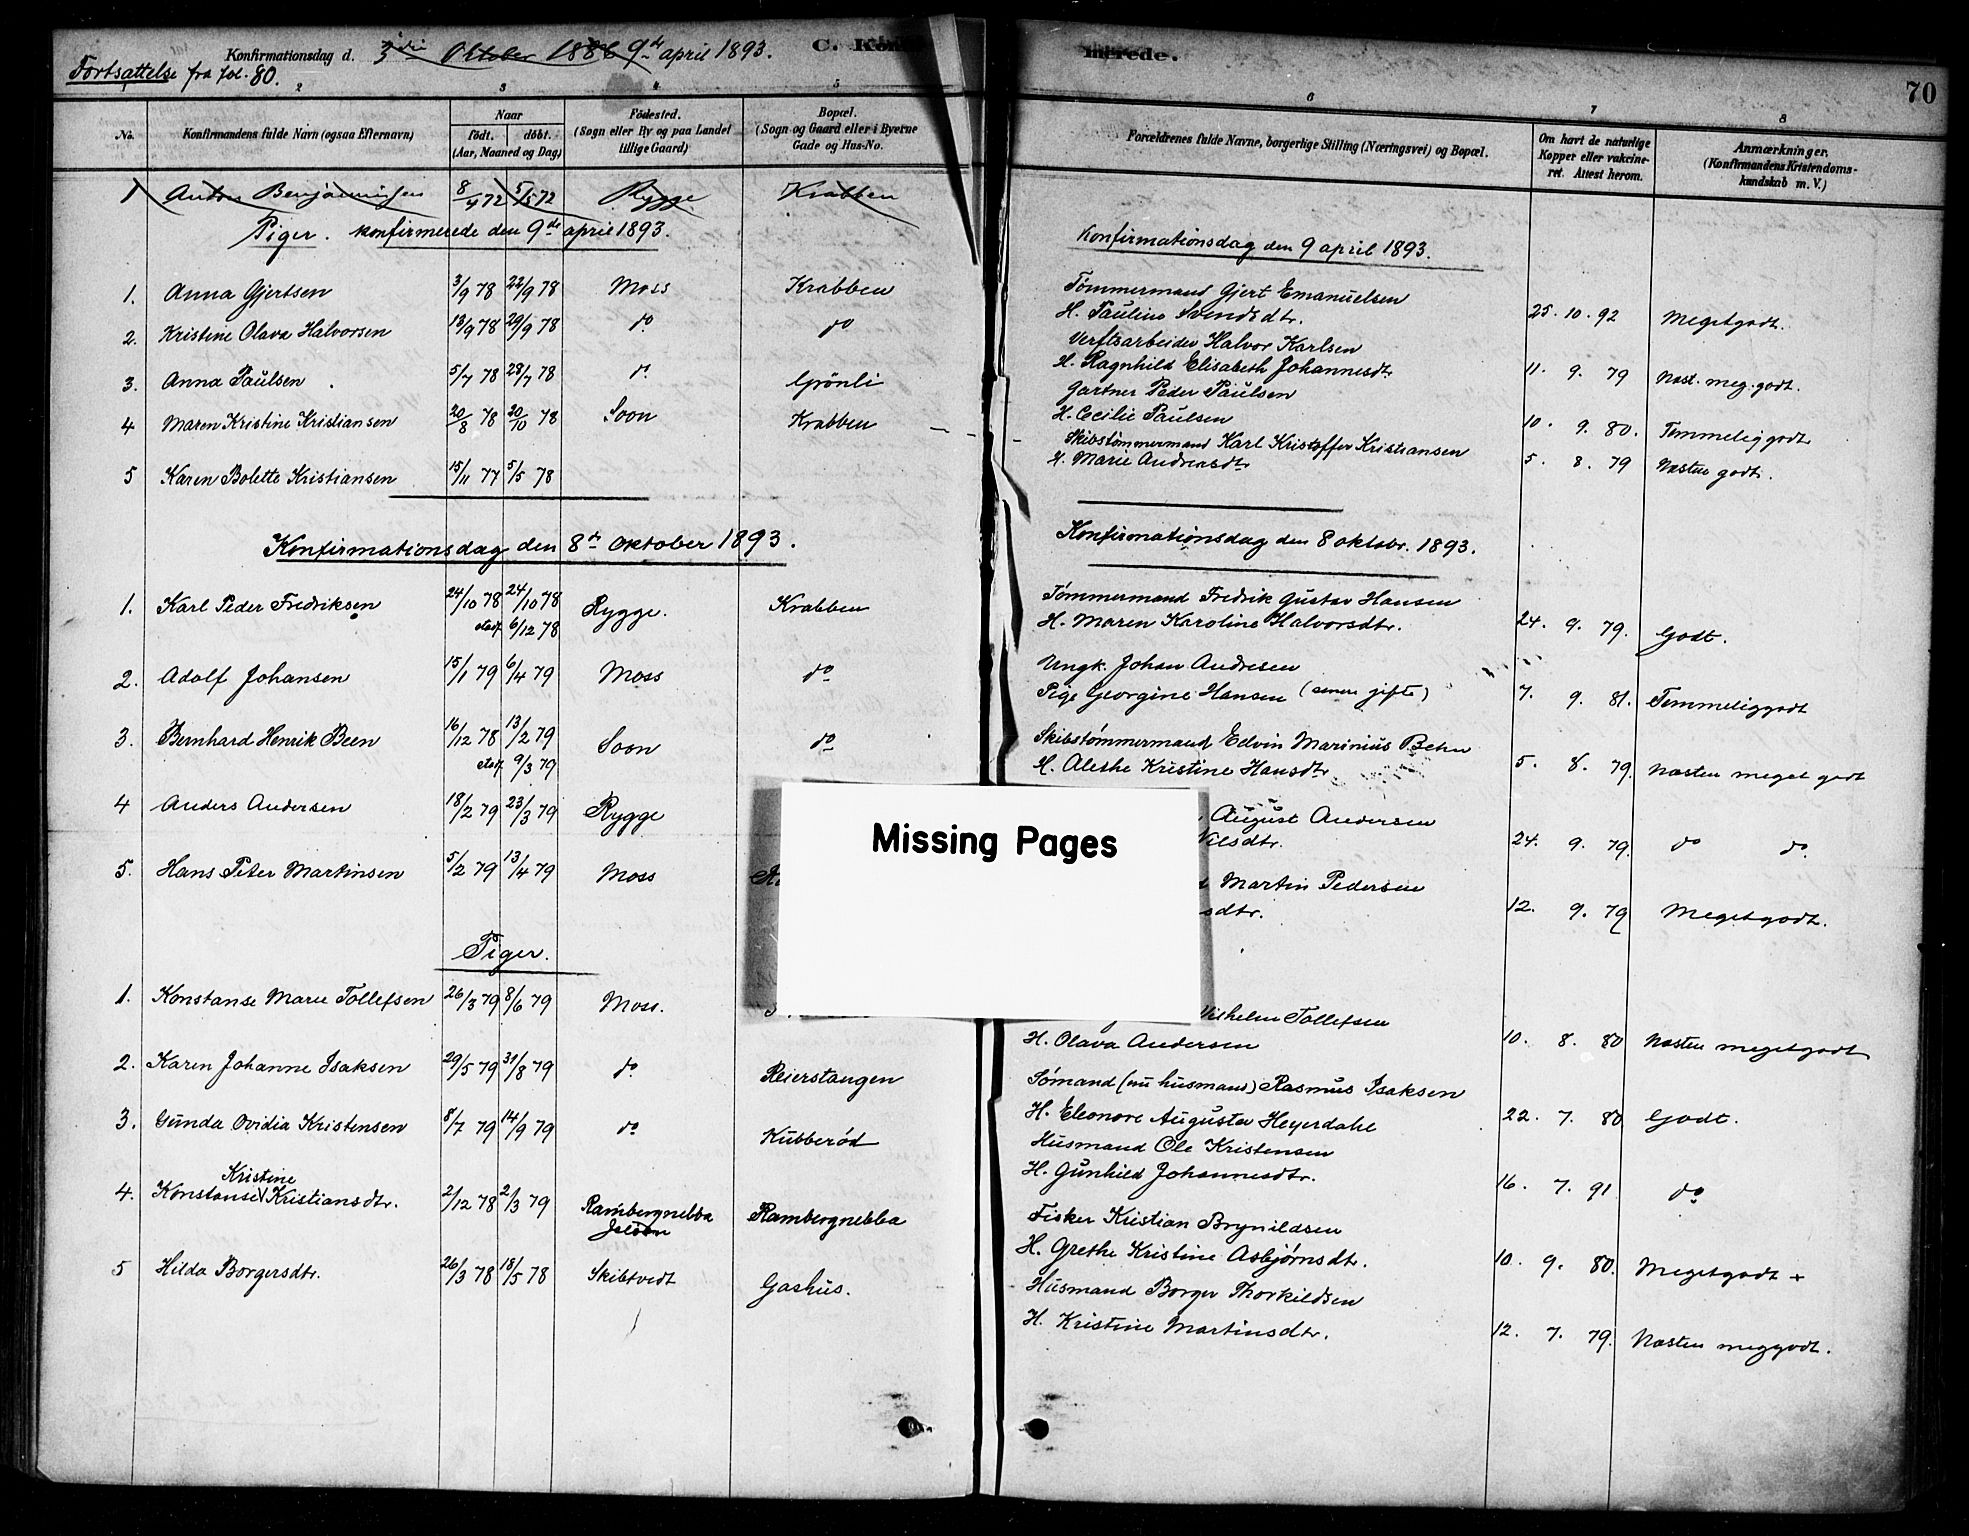 Konfirmationsdag d. 3die Oktober 1886 9de april 1893.
C. Konfir
merede.
70
Fortsættelse fra fol. 80.
2 3 4 5 6 7 8
No.
Konfirmandens fulde Navn (ogsaa Efternavn)
Naar
født. døbt.
(Aar, Maaned og Dag)
Fødested.
(Sogn eller By og paa Landet
tillige Gaard)
Bopæl.
(Sogn og Gaard eller i Byerne
Gade og Hus-No.
Forældrenes fulde Navne, borgerlige Stilling (Næringsvei) og Bopæl.
Om havt de naturlige
Kopper eller vakcine-
ret. Attest herom.
Anmærkninger.
(Konfirmandens Kristendoms-
kundskab m. V.)
1 Benjaminsen 8/4 72 5/5 72 Rygge Krabben
Piger. konfirmerede den 9de april 1893.
Konfirmationsdag den 9 april 1893.
1. Anna Gjertsen 3/9 78 22/9 78 Moss Krabben
Tømmermand Gjert Emanuelsen
H. Pauline Svendsdtr. 25. 10. 92 Megetgodt.
2. Kristine Olava Halvorsen 13/9 78 29/9 78 do do
Verftsarbeider Halvor Karlsen
H. Ragnhild Elisabeth Johannesdtr 11. 9. 79 Næst. meg. godt.
3. Anna Paulsen 5/7 78 28/7 78 do Grönli
Gartner Peder Paulsen
H. Cecilie Paulsen 10. 9. 80. Temmeliggodt
4 Maren Kristine Kristiansen 20/8 78 20/10 78 Soon Krabben
Skibstømmermand Karl Kristoffer Kristiansen
H. Marie Andreasdtr 5. 8. 79 Næsten godt.
5 Karen Bolette Kristiansen 15/11 77 5/5 78
Konfirmationsdag den 8de Oktober 1893.
Konfirmationsdag den 8 oktobr. 1893.
1. Karl Peder Fredriksen 24/10 78 24/10 78 Rygge. Krabben
stadf. 6/12 78
Tømmermand Fredrik Gustav Hansen
H. Maren Karoline Halvorsdtr. 24. 9. 79. Godt.
2. Adolf Johansen 15/1 79 6/4 79 Moss do
Ungk. Johan Andresen
Pige Georgine Hansen (senere gifte) 7. 9. 81. Temmeliggodt
3. Bernhard Henrik Been 16/12 78 13/2 79 Soon do
stadf. 9/3 79
Skibstømmermand Edvin Marinius Behn
H. Alethe Kristine Hansdtr 5. 8. 79. Næsten meget godt
4 Anders Andersen 18/2 79 23/3 79 Rygge
August Andersen
Nilsdtr. 24. 9. 79. do do.
5. Hans Peter Martinsen 5/2 79 13/4 79 Moss
Martin Pedersen
sdtr. 12. 9. 79 Megetgodt.
Missing Pages
Piger.
1. Konstanse Marie Tollefsen 26/3 79 8/6 79 Moss.
Vilhelm Tollefsen
H. Olava Andersen 10. 8. 80 Næsten megetgodt
2. Karen Johanne Isaksen 29/5 79 31/8 79 do Reierstangen
Sømand (nu husmand) Rasmus Isaksen
H. Eleonore Augusta Heyerdahl 22. 7. 80 Godt.
3. Gunda Ovidia Kristensen 8/7 79 14/9 79 do Kubberød
Husmand Ole Kristensen
H. Gunhild Johannesdtr. 16. 7. 91 do
Kristine
4. Konstanse Kristiansdtr. 2/12 78 2/3 79 Rambergnebba Rambergnebba
Jeløen
Fisker Kristian Brynildsen
H. Grethe Kristine Asbjørnsdtr. 10. 9. 80. Megetgodt +
5 Hilda Borgersdtr. 26/3 78 18/5 78 Skibtvedt Gashus.
Husmand Borger Thorkildsen
H. Kristine Martinsdtr. 12. 7. 79. Næsten meggodt.